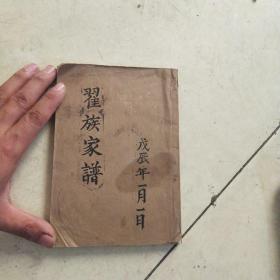 翟族家譜
戊辰年一月一日